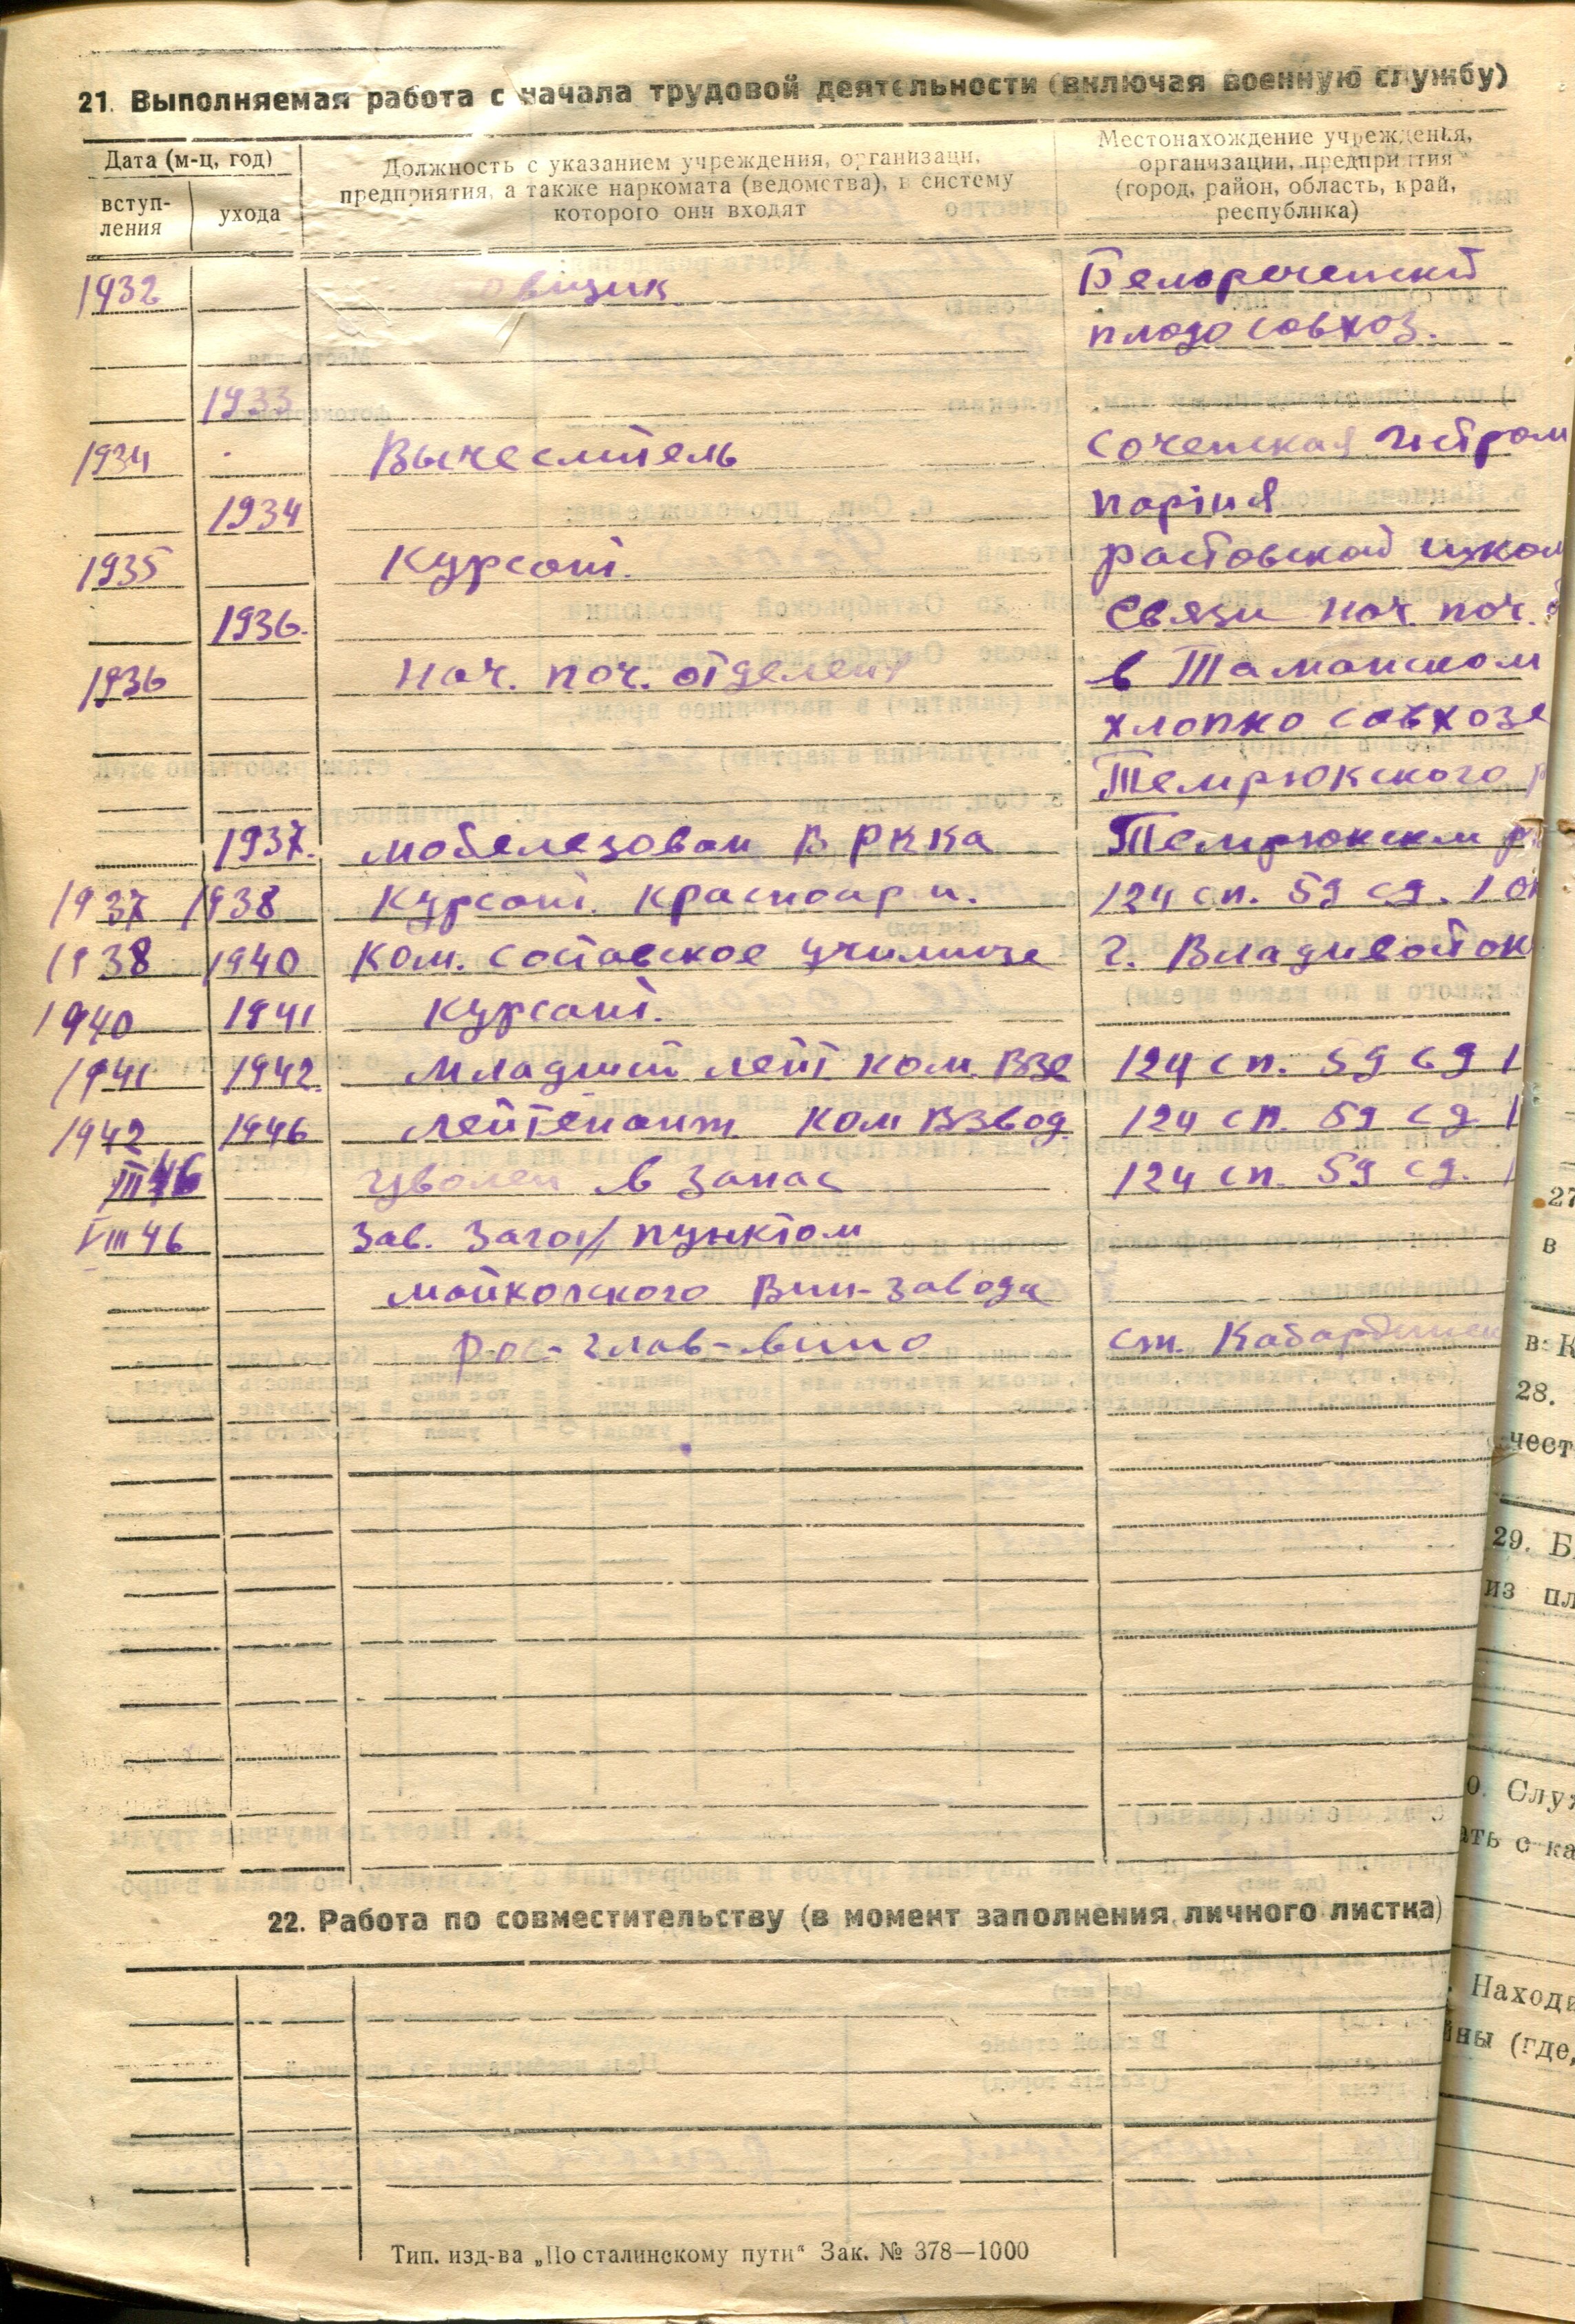 21. Выполняемая работа с начала трудовой деятельности (включая военную службу)
Дата (м-ц, год)
вступ-
ления
ухода
Должность с указанием учреждения, организаци,
предприятия, а также наркомата (ведомства), в систему
которого они входят
Местонахождение учреждения,
организации, предприятия
(город, район, область, край,
республика)
1932 овщик Белореченский
плодосовхоз.
1933
1934 Вычеслитель Соченская
1934 партия
1935 Курсант. ростовской школ
1936. Связи нач. поч.
1936 Нач. поч. отделен в Таманском
хлопко совхозе
Темрюкского р
1937. мобелезован в РККА Темрюкским
1937 1938 Курсант. Красноарм. 124 сп. 59 сд. 1
1938 1940 Ком. составское училище г. Владивосток
1940 1941 Курсант.
1941 1942 Младший лейт. ком. Взв 124 сп. 59 сд 1
1942 1946 Лейтенант ком Взвод. 124 сп. 59 сд 1
III 46 Уволен в запас 124 сп. 59 сд. 1
VIII 46 Зав. Загот/пунктом
майкопского Вин-завода
Рос-глав-вино ст. Кабардинск
22. Работа по совместительству (в момент заполнения личного листка)
Тип. изд-ва „По сталинскому пути“ Зак. № 378—1000
27
в
в К
28.
чест
29. Б
из пл
0. Служ
ать с ка
. Находи
йны (где,